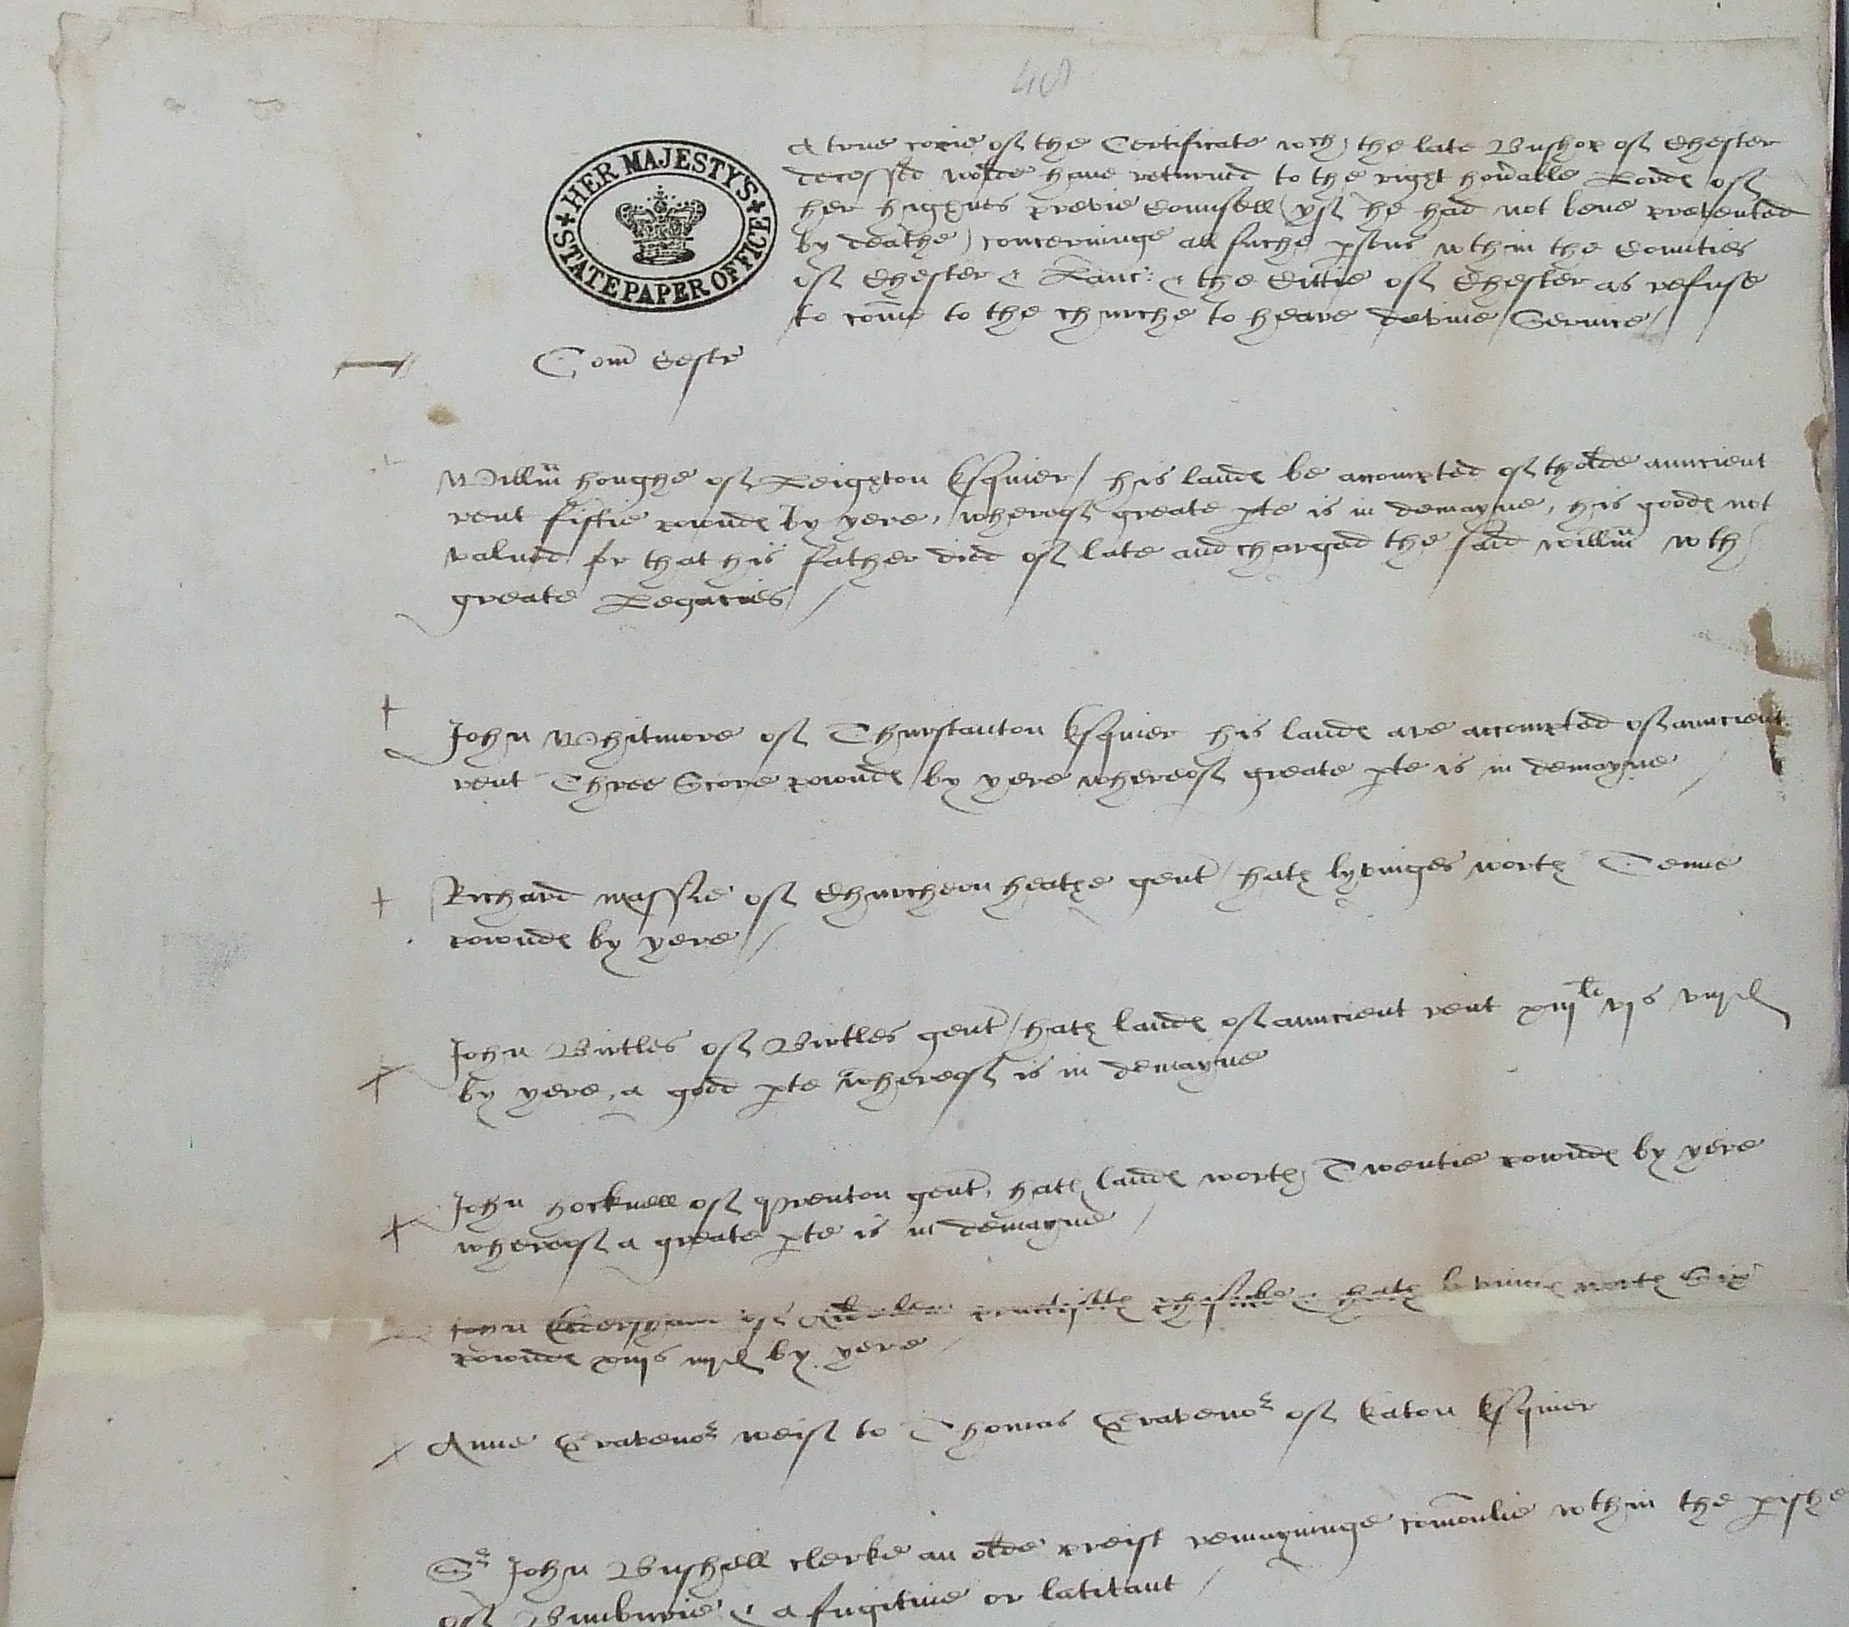 48
HER MAJESTY'S STATE PAPER OFFICE
A true copie of the Certificate wch the late Busshop of Chester
decessed wolde have returned to the right ho'rable Lordes of
her highnes previe Counsell (yf he had not bene prevented
by deathe) concerninge all suche p'sons wthin the Counties
of Chester & Lanc: & the Cittie of Chester as refuse
to come to the churche to heare devine Service /
Com Cestr
Willm houghe of Leighton Esquier / his landes be accompted of tholde auncient
rent fiftie poundes by yere, whereof greate pte is in demayne, his goodes not
valued for that his father died of late and charged the said willm wth
greate Legacies /
John Whitmore of Thurstanton Esquier his landes are accompted of auncient
rent Three Score poundes by yere whereof greate pte is in demayne /
Richard massie of Churcheon heathe gent / hath lyvinges worth Tenne
poundes by yere /
John Birtles of Birtles gent / hath landes of auncient rent xiijli vjs viijd
by yere, a good pte whereof is in demayne
John hocknell of Prenton gent, hath landes worth Twentie poundes by yere
whereof a greate pte is in demayne /
John of practisith phisicke & hath lyvinges worth Six
poundes xiijs iiijd by yere /
Anne Gravenor weif to Thomas Gravenor of Eaton Esquier
Sr John Bushell clerke an olde preist remayninge comonlie wthin the pishe
of Bunburie & a fugitive or latitant /